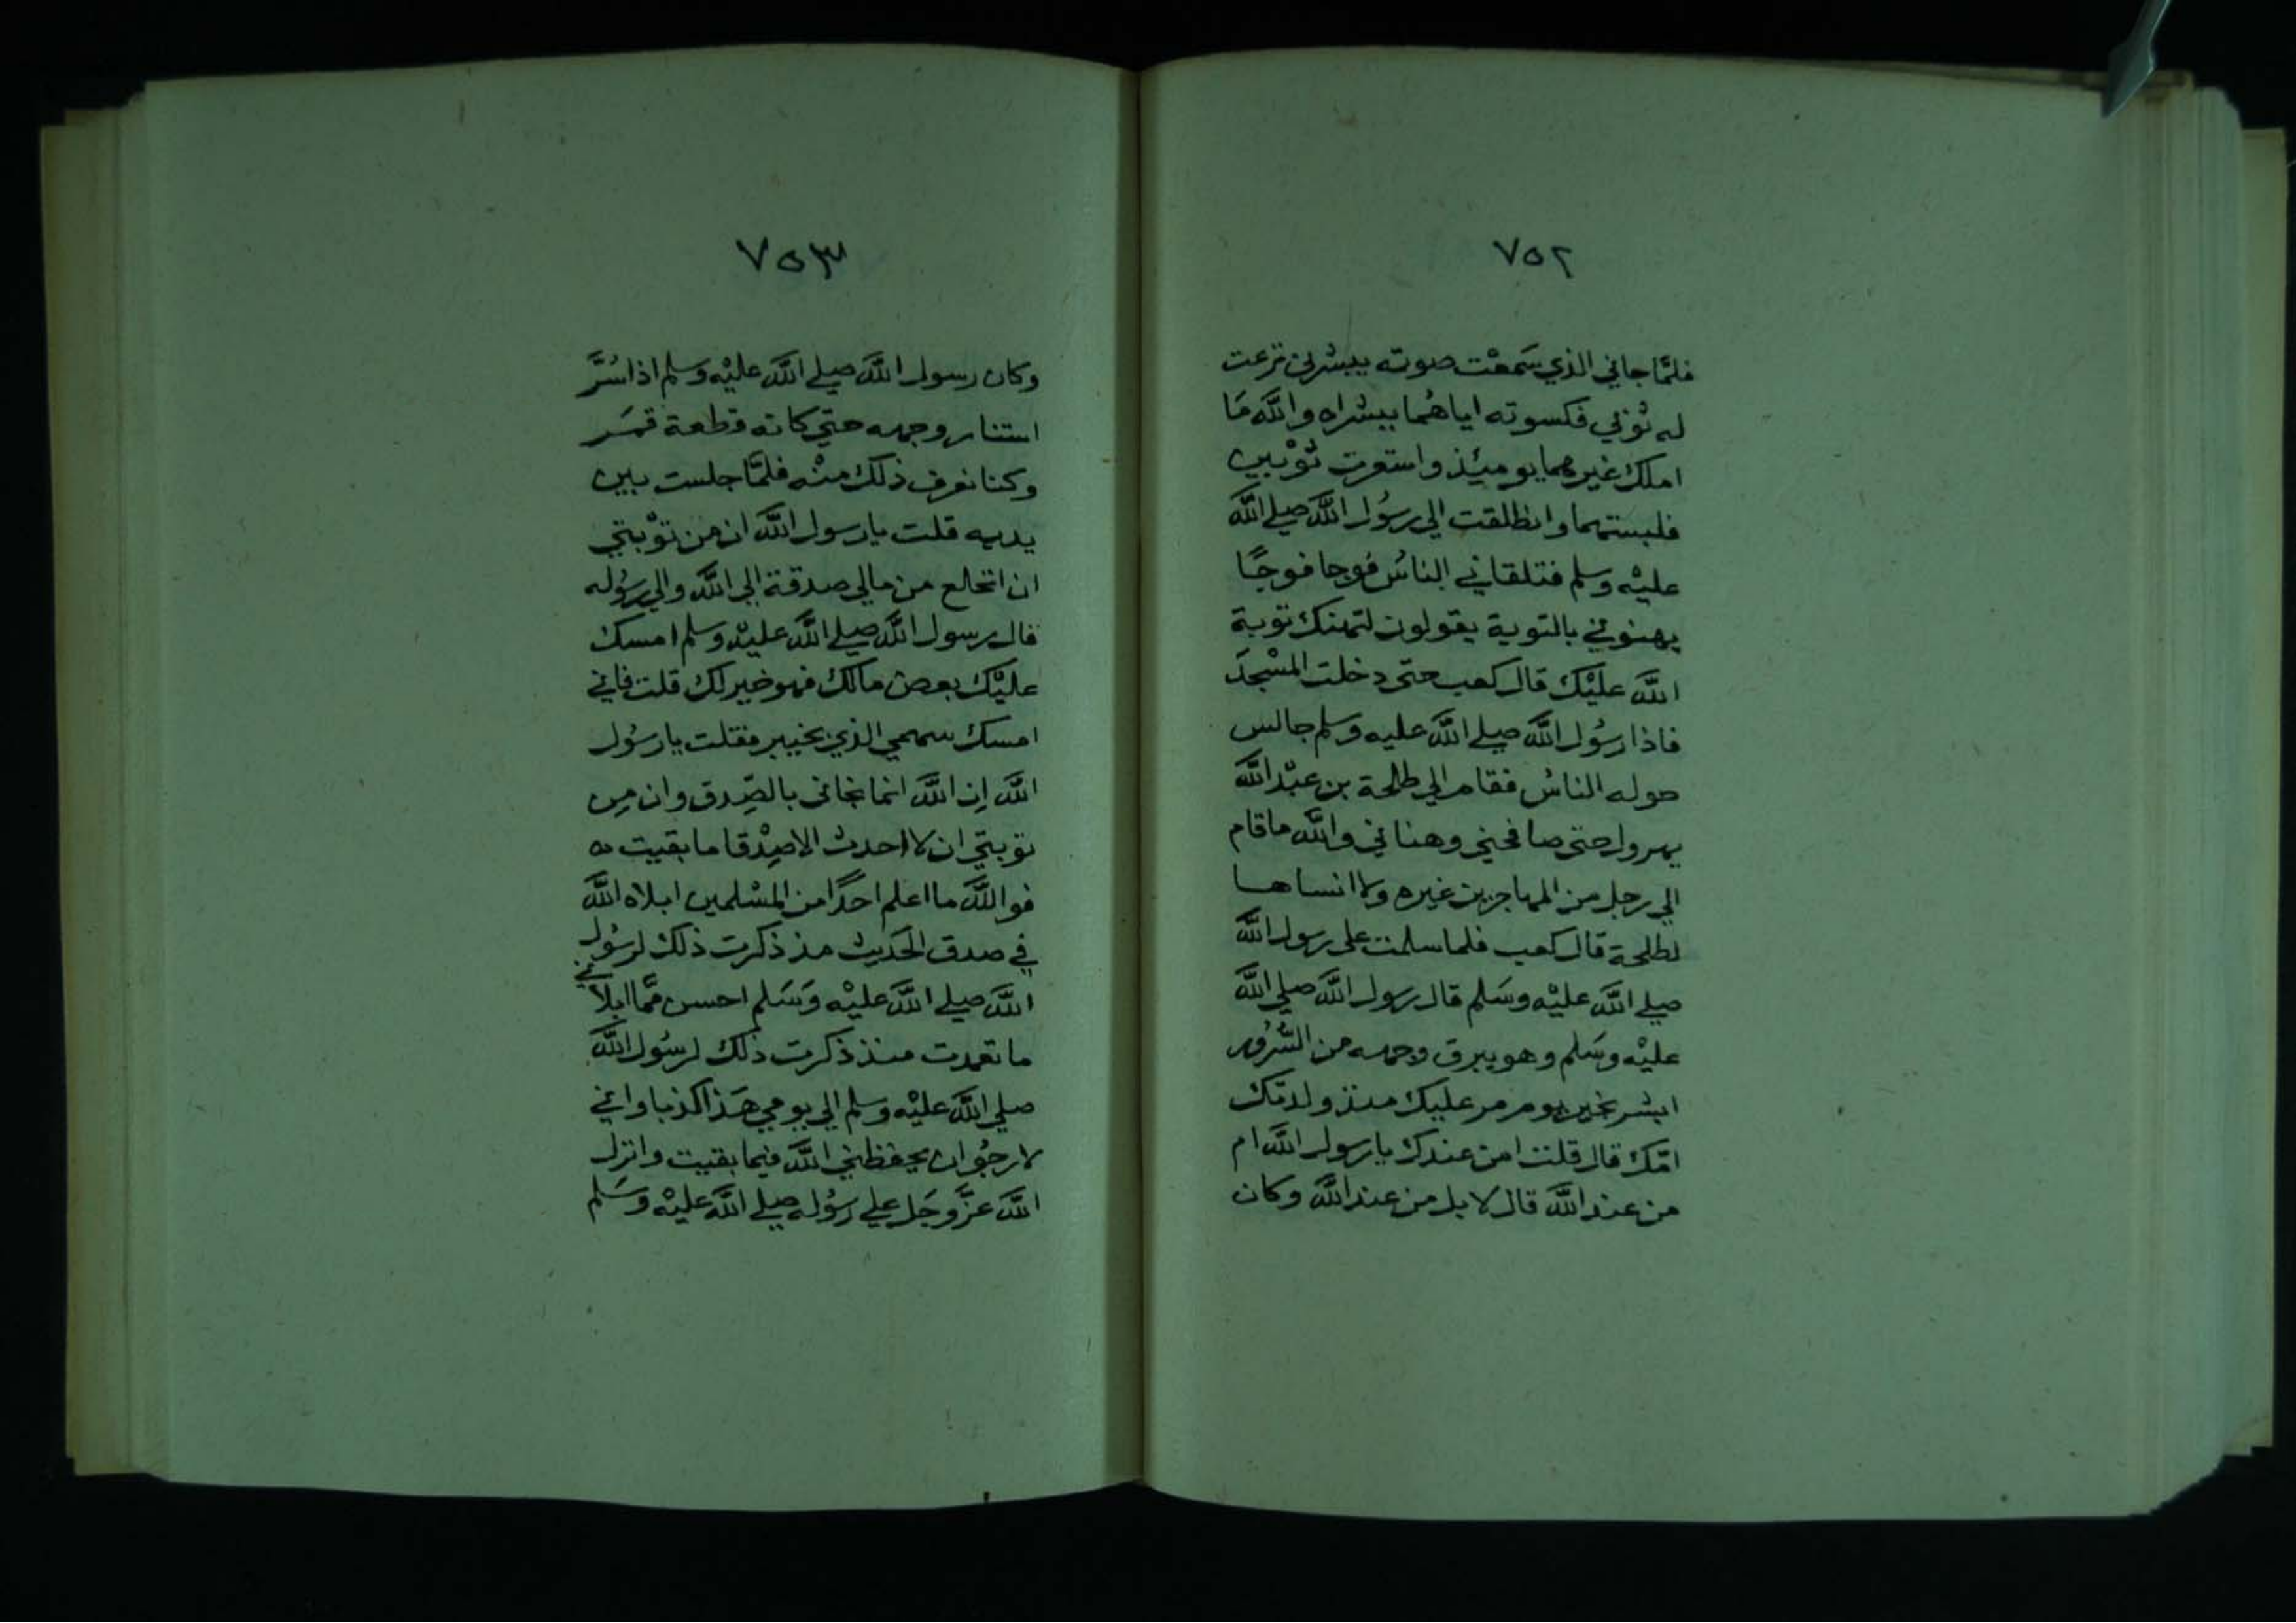 ٧٥٢
فلمَّا جاني الذي سَمعْت صوته يبشرني نزعت
له ثوْبي فكسوته اياهُما ببشراه واللَّه مَا
املك غيرهما يوميئذ واستعرت ثوْبين
فلبستهما وانطلقت الي رسُول اللَّه صلي اللَّه
عليْه وسلم فتلقاني الناسُ فوجا فوجًا
يهنوني بالتوبة يقولون لتهنك توبة
اللَّه عليْك قال كعب حتى دخلت المسْجدَ
فاذا رسُول اللَّه صلي اللَّه عليه وسلم جالس
حوله الناسُ فقام الي طلحة بن عبْد اللَّه
يهرول حتى صافحني وهناني واللَّه ماقام
الي رجل من المهاجرين غيره ولا انساها
لطلحة قال كعب فلما سلمت على رسول اللَّه
صلي اللَّه عليْه وسَلم قال رسول اللَّه صلي اللَّه
عليْه وسَلم وهو يبرق وجهه من السُّرُور
ابشر بخير يوم مر عليك منذ ولدتك
امّك قال قلت امن عندك يا رسول اللَّه ام
من عند اللَّه قال لا بل من عند اللَّه وكان
٧٥٣
وكان رسول اللَّه صلي اللَّه عليْه وسلم اذا سُرَّ
استنار وجهه حتي كانه قطعة قمَر
وكنا نعرف ذلك منْه فلمَّا جلست بين
يديه قلت يا رسول اللَّه ان من توْبتي
ان انخلع من مالي صدقة الي اللَّه والي رسُوله
قال رسول اللَّه صلي اللَّه عليْه وسلم امسك
عليْك بعض مالك فهو خير لك قلت فاني
امسك سهمي الذي بخيبر فقلت يا رسُول
اللَّه اِن اللَّه انما نجاني بالصِّدق وان مِن
توبتي ان لا احدث الا صِدْقا ما بقيت ه
فو اللَّه ما اعلم احدًا من المسْلمين ابلاه اللَّه
في صدق الحَديث مذ ذكرت ذلك لرسُول
اللَّه صلي اللَّه عليْه وَسَلم احسن ممَّا ابلاني
ما تعمدت منذ ذكرت ذلك لرسُول اللَّه
صلي اللَّه عليْه وسلم الي يومي هَذا كذبا واني
لارجُو ان يحفظني اللَّه فيما بقيت وانزل
اللَّه عزَّ وجَل علي رسُوله صلي اللَّه عليْه وسَلم